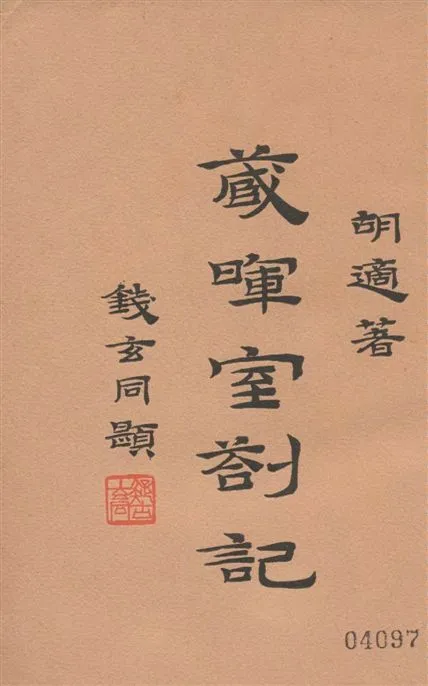 胡適著
藏暉室劄記
錢玄同題
04097